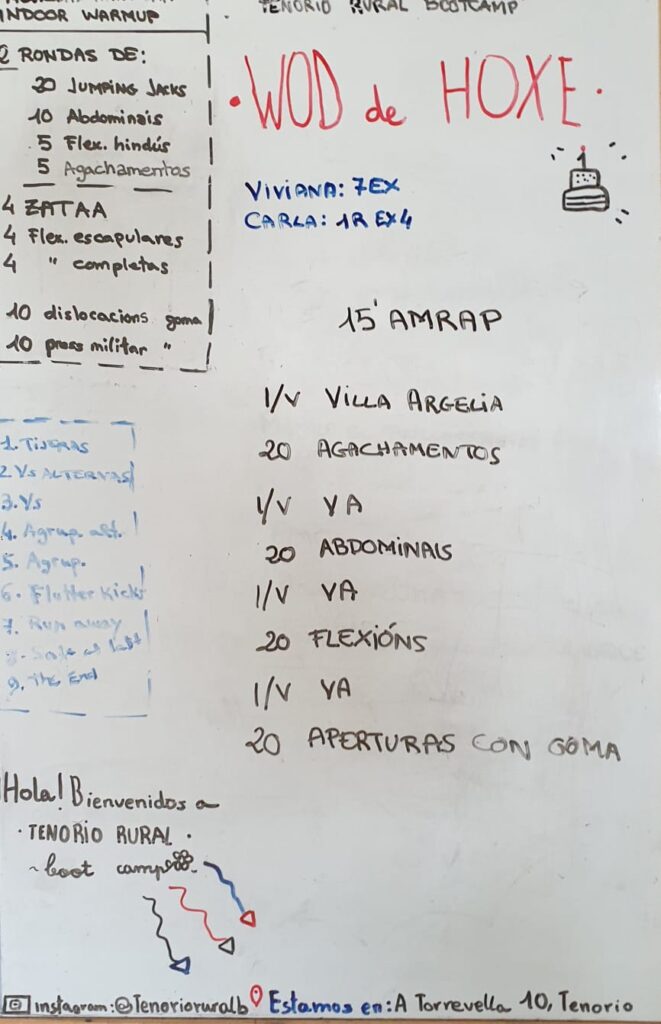 INDOOR WARMUP
2 RONDAS DE:
20 JUMPING JACKS
10 Abdominais
5 Flex. hindús
5 Agachamentos
4 ZATAA
4 Flex. escapulares
4 " completas
10 dislocacions goma
10 press militar "
1. TIJERAS
2. Vs ALTERNAS
3. Vs
4. Agrup. alt.
5. Agrup.
6. Flutter Kicks
7. Run away
8. Safe at last
9. The End
Hola! Bienvenidos a
· TENORIO RURAL ·
~ boot camp
TENORIO RURAL BOOTCAMP
· WOD de HOXE ·
1
VIVIANA: 7EX
CARLA: 1R EX4
15' AMRAP
I/V VILLA ARGELIA
20 AGACHAMENTOS
I/V VA
20 ABDOMINAIS
I/V VA
20 FLEXIÓNS
I/V VA
20 APERTURAS CON GOMA
instagram: @Tenorioruralb Estamos en: A Torrevella 10, Tenorio